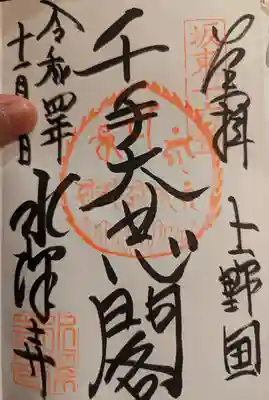 奉拝
上野国
千手大悲閣
令和四年
十一月日
水澤寺